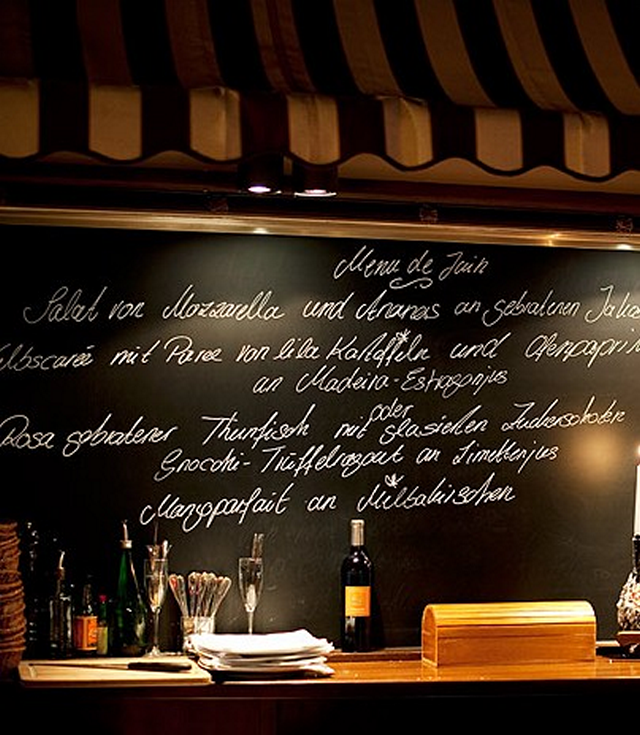 Menu de Jain
Salat von Mozzarella und Ananas an gebratenen
mit Püree von lila Kartoffeln und Ofenpapri
an Madeira-Estragonjus
oder
Rosa gebratener Thunfisch mit glasierten Zuckerschoten
Gnocchi-Trüffelragout an Limettenjus
Mangoparfait an